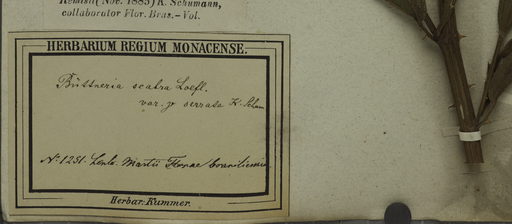 Remisit (Nov. 1885) K. Schumann,
collaborator Flor. Bras.-Vol.
HERBARIUM REGIUM MONACENSE.
Büttneria scabra Loefl.
var. γ serrata K. Schum
No 1251. Martii Florae brasiliensis
Herbar. Kummer.